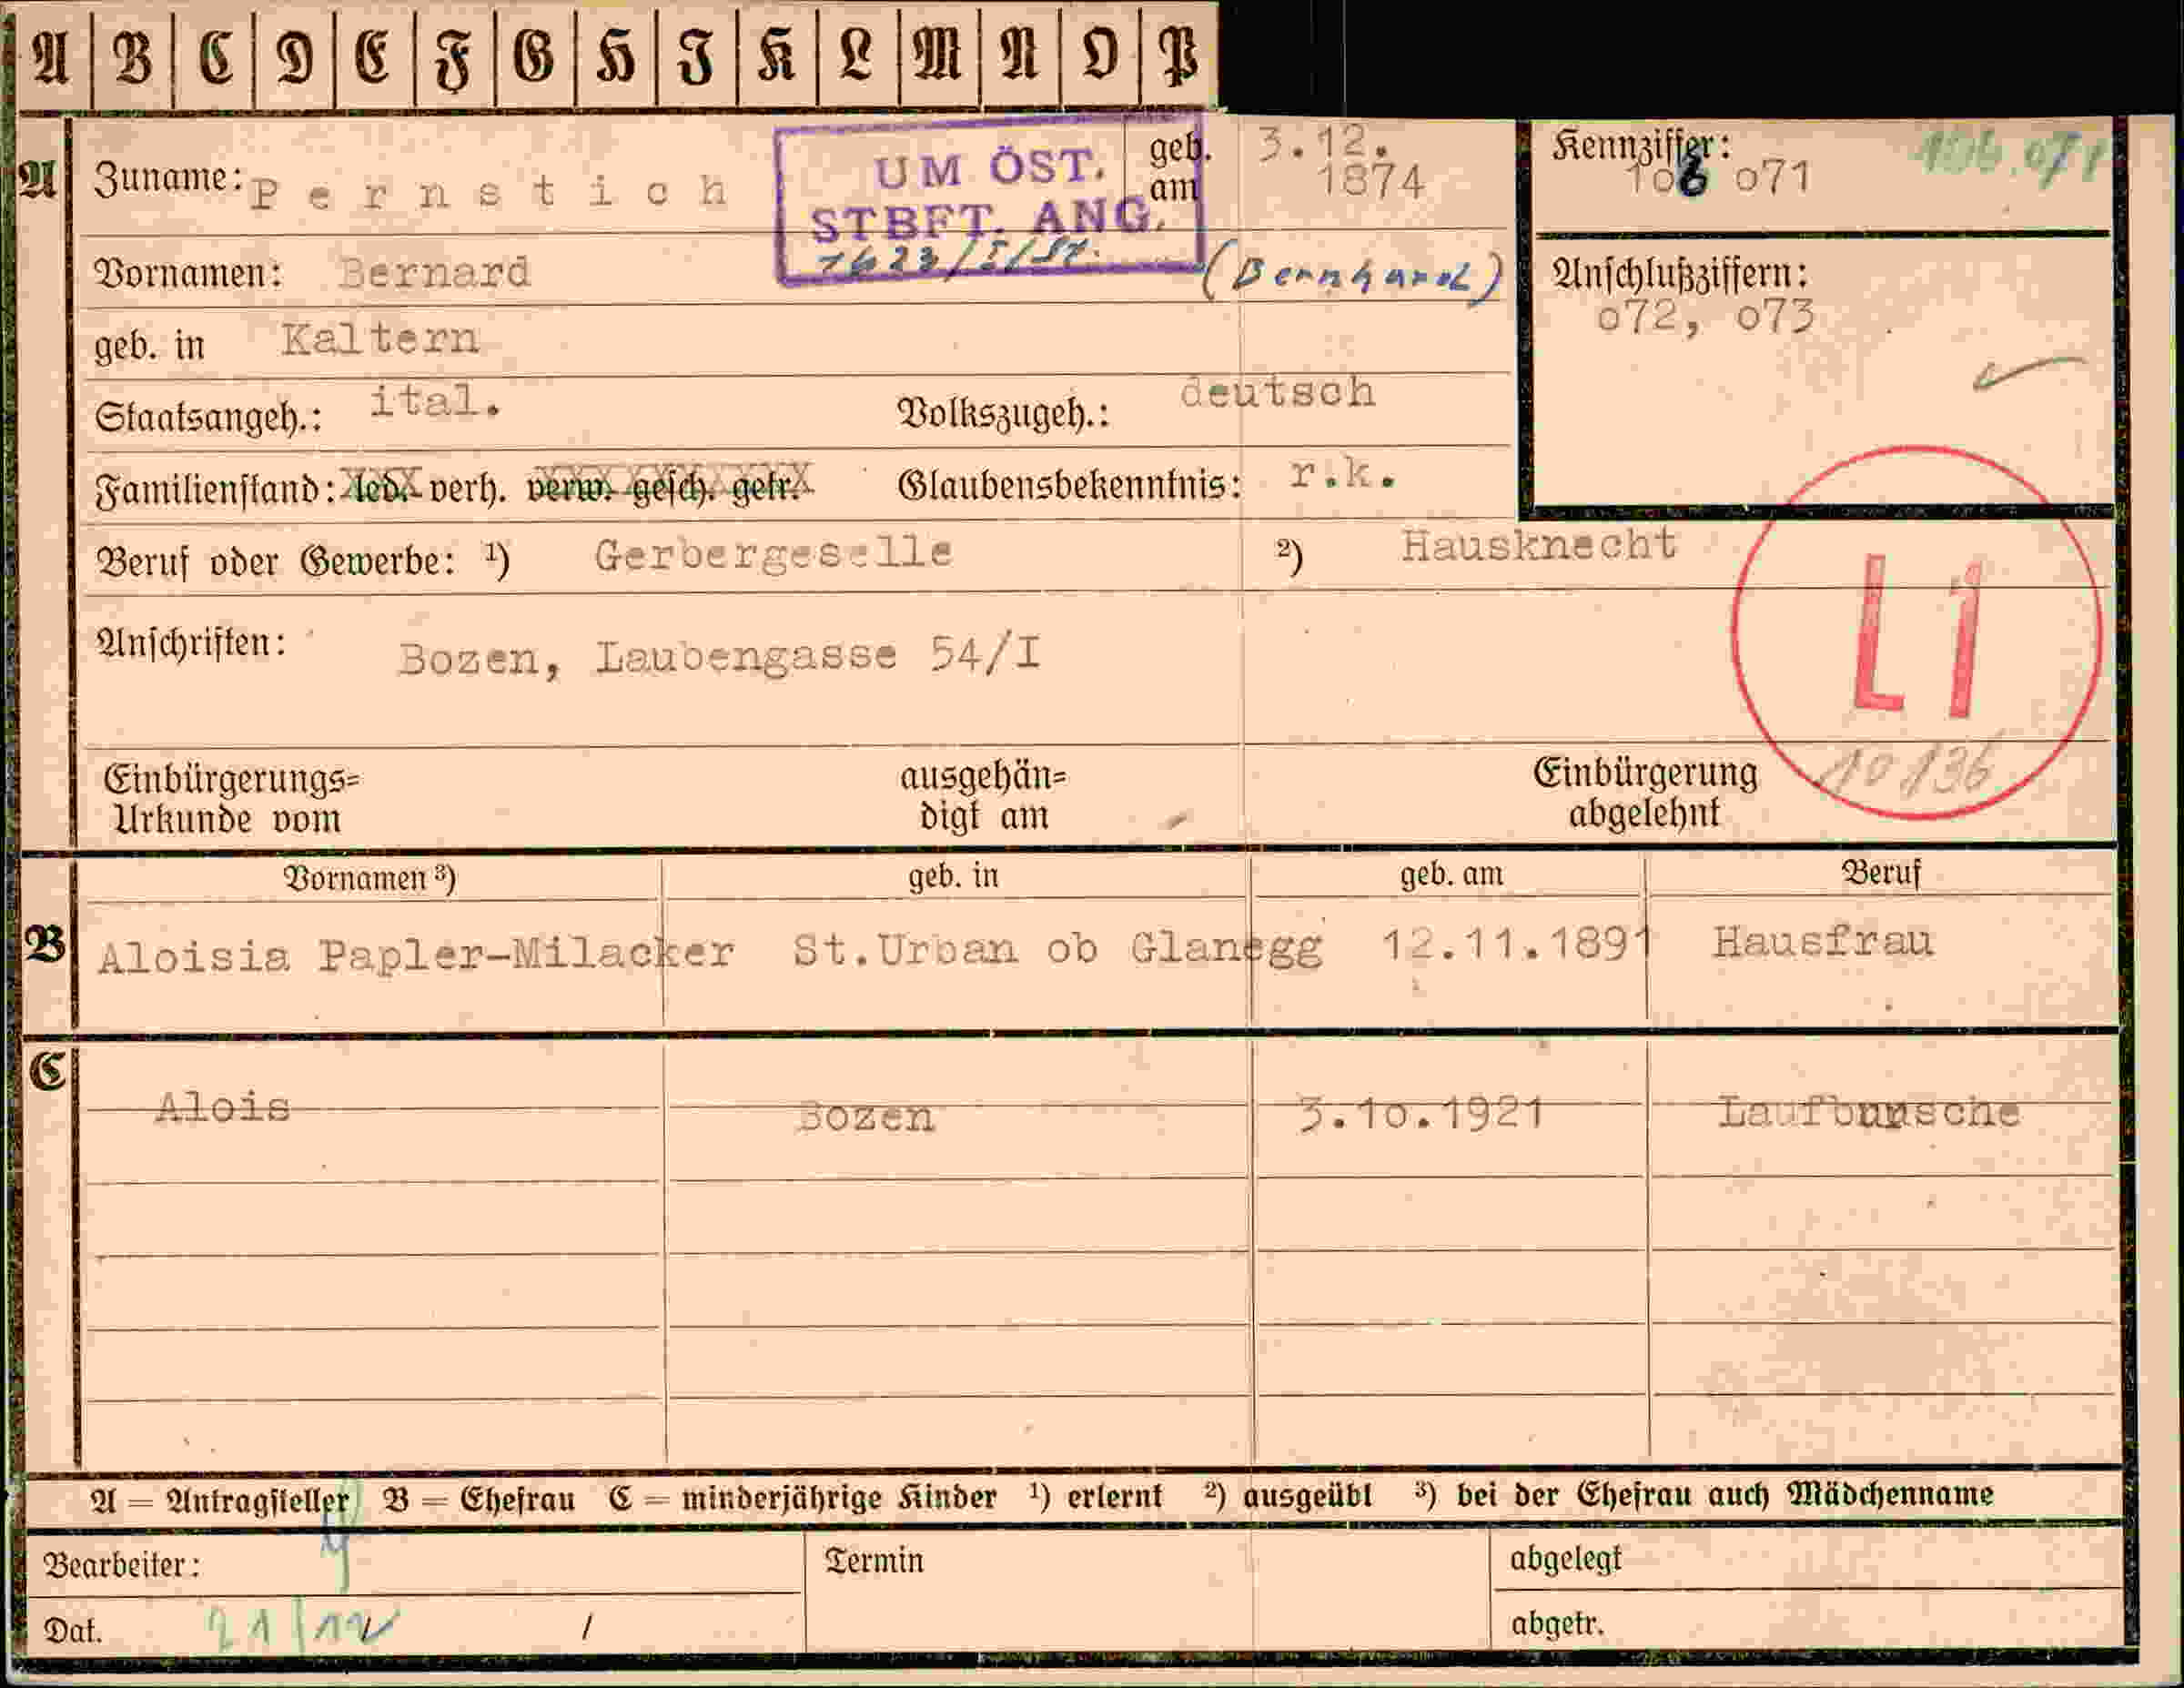 A B C D E F G H I K L M N O P
A Zuname: Pernstich geb. am 3.12.1874
UM ÖST.
STBFT. ANG.
Kennziffer: 106 071 106.071
Vornamen: Bernard (Bernhard)
Anschlußziffern:
072, 073
geb. in Kaltern
Staatsangeh.: ital. Volkszugeh.: deutsch
Familienstand: led. verh. verw. gesch. getr. Glaubensbekenntnis: r.k.
Beruf oder Gewerbe: ¹) Gerbergeselle ²) Hausknecht
Li
10136
Anschriften: Bozen, Laubengasse 54/I
Einbürgerungs=
Urkunde vom
ausgehän=
digt am
Einbürgerung
abgelehnt
Vornamen ³) geb. in geb. am Beruf
B Aloisia Papler-Milacker St.Urban ob Glanegg 12.11.1891 Hausfrau
C Alois Bozen 3.10.1921 Laufbursche
A = Antragsteller B = Ehefrau C = minderjährige Kinder ¹) erlernt ²) ausgeübt ³) bei der Ehefrau auch Mädchenname
Bearbeiter: Termin abgelegt
Dat. 21/12 / abgetr.